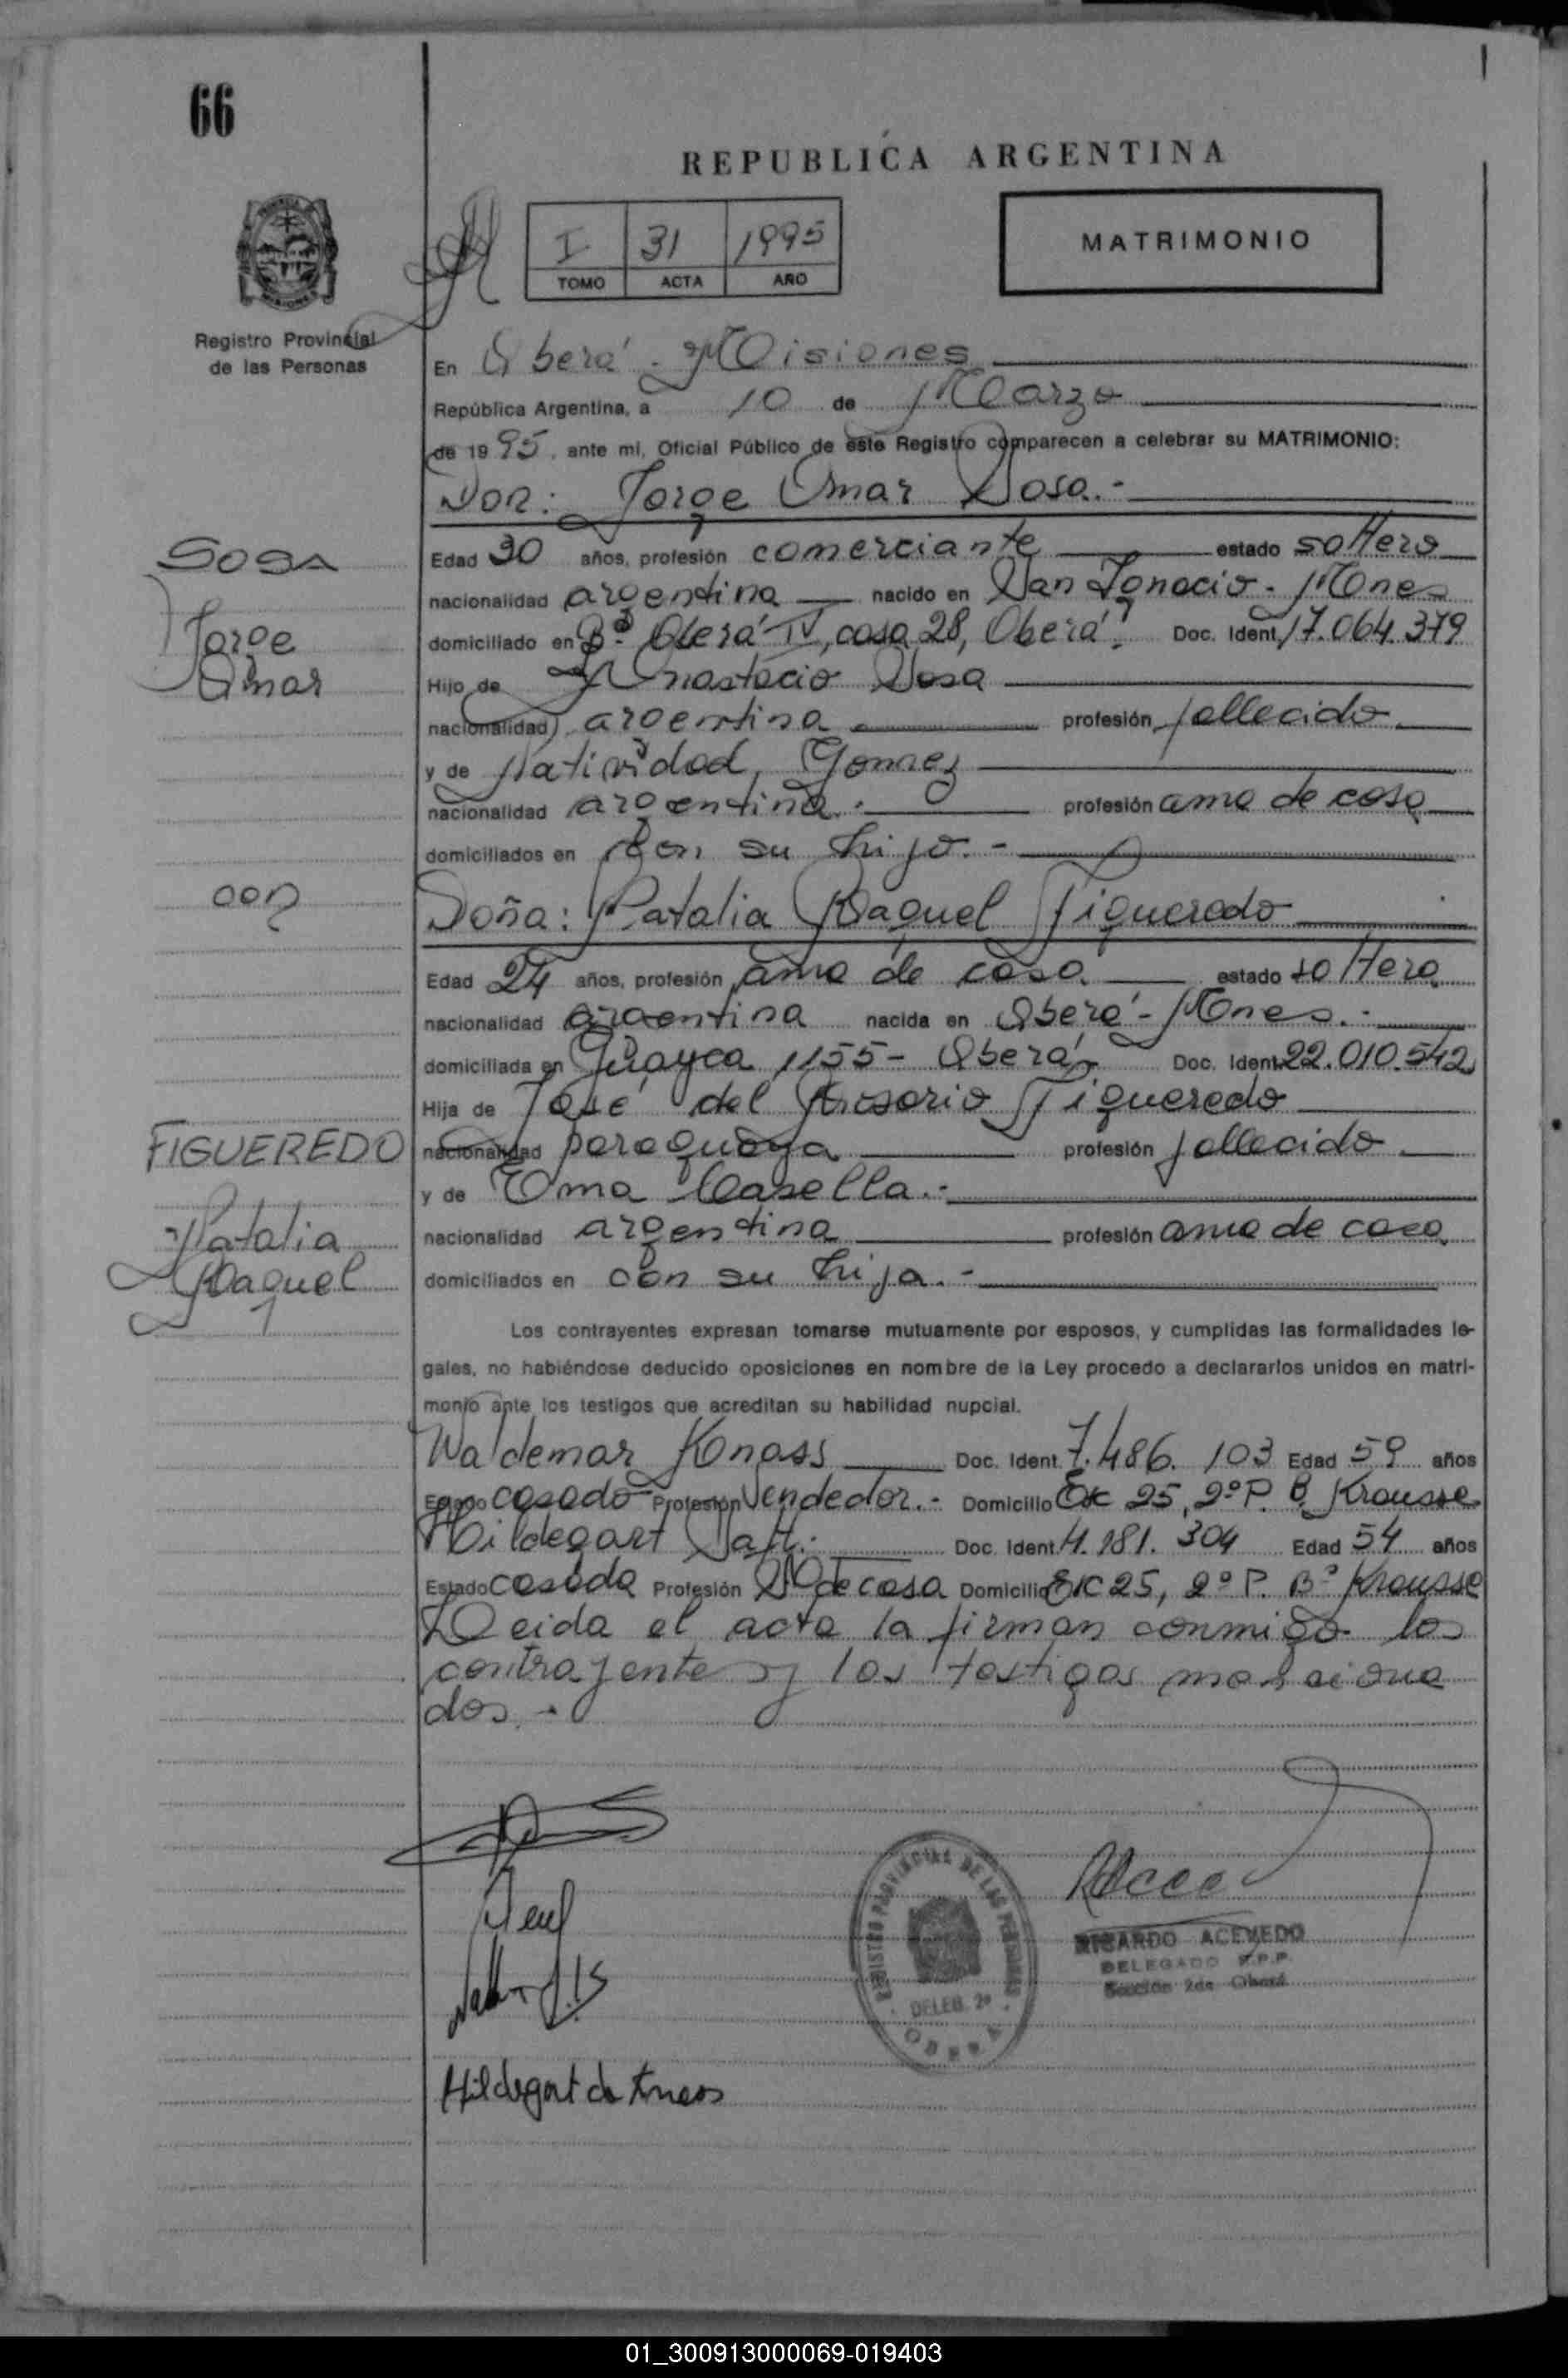 66
REPUBLICA ARGENTINA
I 31 1995
TOMO ACTA AÑO
MATRIMONIO
Registro Provincial
de las Personas
En Oberá - Misiones
República Argentina, a 10 de Marzo
de 1995, ante mi, Oficial Público de este Registro comparecen a celebrar su MATRIMONIO:
Don: Jorge Omar Sosa.-
SOSA
Jorge
Omar
Edad 30 años, profesión comerciante estado soltero
nacionalidad argentina nacido en San Ignacio - Mnes
domiciliado en Bº Oberá IV, casa 28, Oberá. Doc. Ident. 17.064.379
Hijo de Anastacio Sosa
nacionalidad argentina profesión fallecido
y de Natividad Gomez
nacionalidad argentina.- profesión ama de casa
domiciliados en con su hijo.-
con
Doña: Natalia Raquel Figueredo
Edad 24 años, profesión ama de casa estado soltera
nacionalidad argentina nacida en Oberá - Mnes.-
domiciliada en 1155 - Oberá Doc. Ident. 22.010.542
Hija de José del Rosario Figueredo
FIGUEREDO
Natalia
Raquel
nacionalidad paraguaya profesión fallecido
y de Ema Casella.-
nacionalidad argentina profesión ama de casa
domiciliados en con su hija.-
Los contrayentes expresan tomarse mutuamente por esposos, y cumplidas las formalidades le-
gales, no habiéndose deducido oposiciones en nombre de la Ley procedo a declararlos unidos en matri-
monio ante los testigos que acreditan su habilidad nupcial.
Waldemar Knass Doc. Ident. 7.486.103 Edad 59 años
Estado casado Profesión Vendedor.- Domicilio 25, 2º P. B. Krausse
Hildegart Doc. Ident. 4.181.304 Edad 54 años
Estado casada Profesión de casa Domicilio 25, 2º P. Bº Krausse
Leida el acta la firman conmigo los
contrayentes y los testigos menciona
dos.-
REGISTRO PROVINCIAL DE LAS PERSONAS
DELEG. 2ª
OBERA
RICARDO ACEVEDO
DELEGADO R.P.P.
Sección 2da Oberá
Hildegart de
01_300913000069-019403